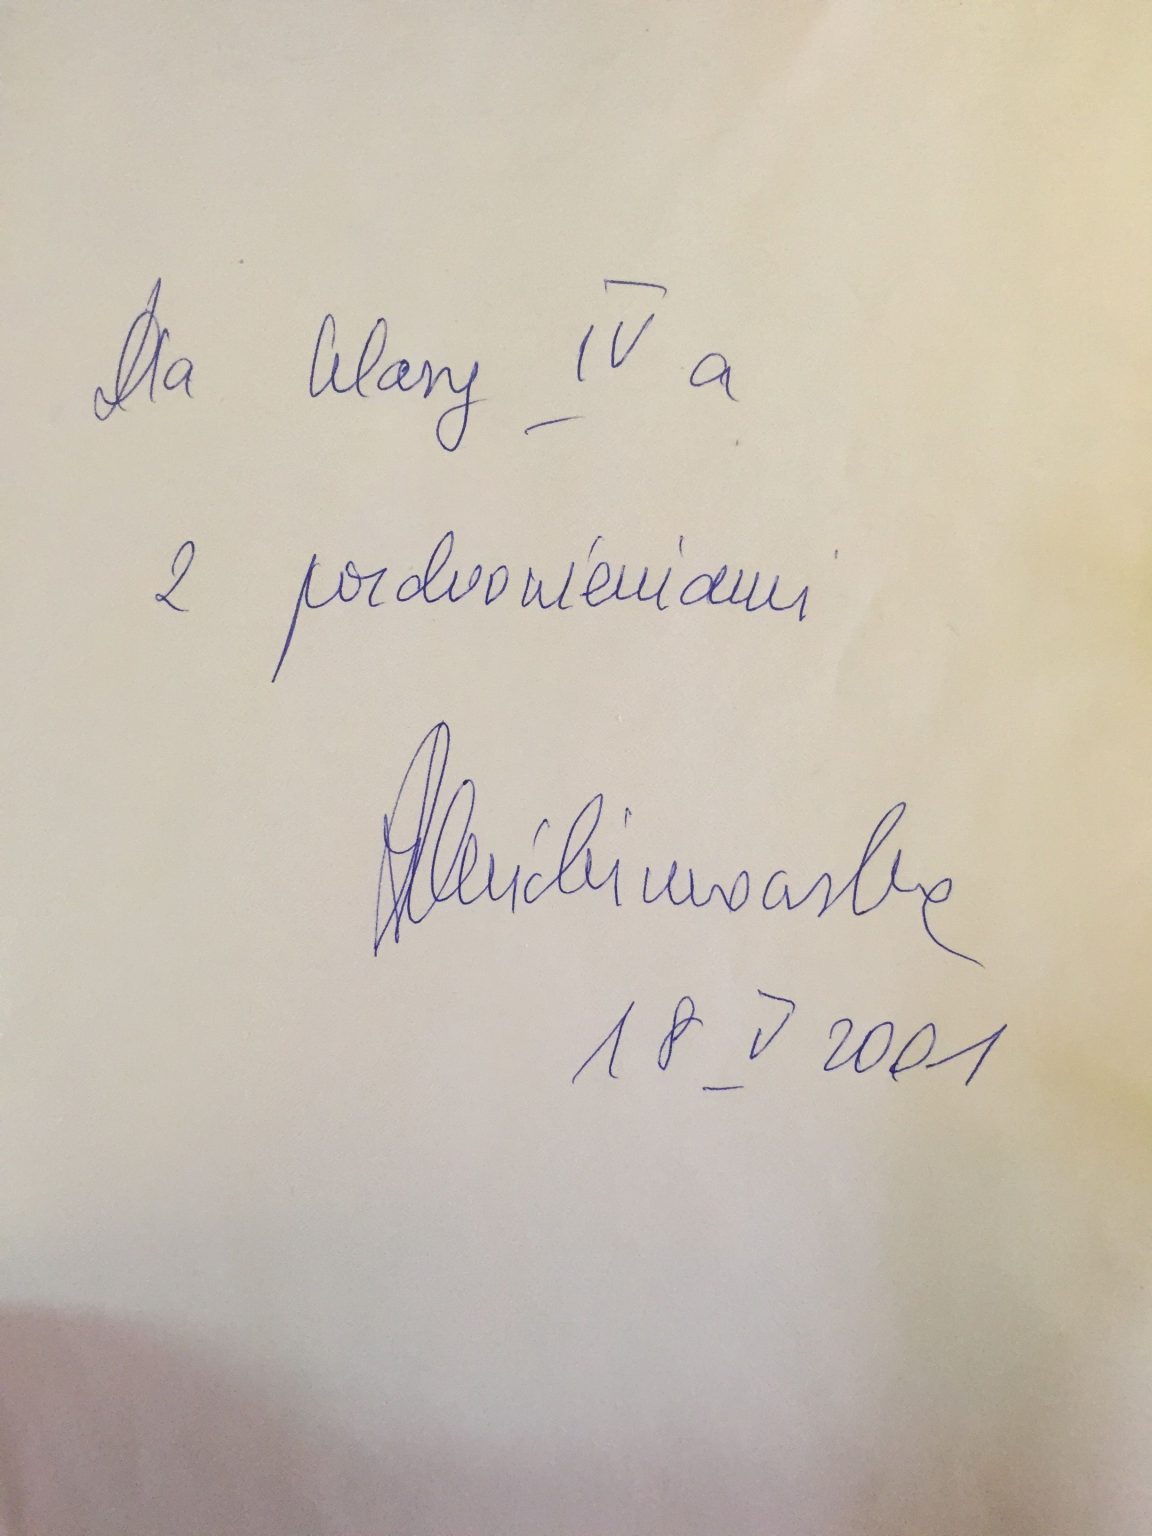 Dla klasy IV a
z pozdrowieniami
AOnichimowska
18 V 2001